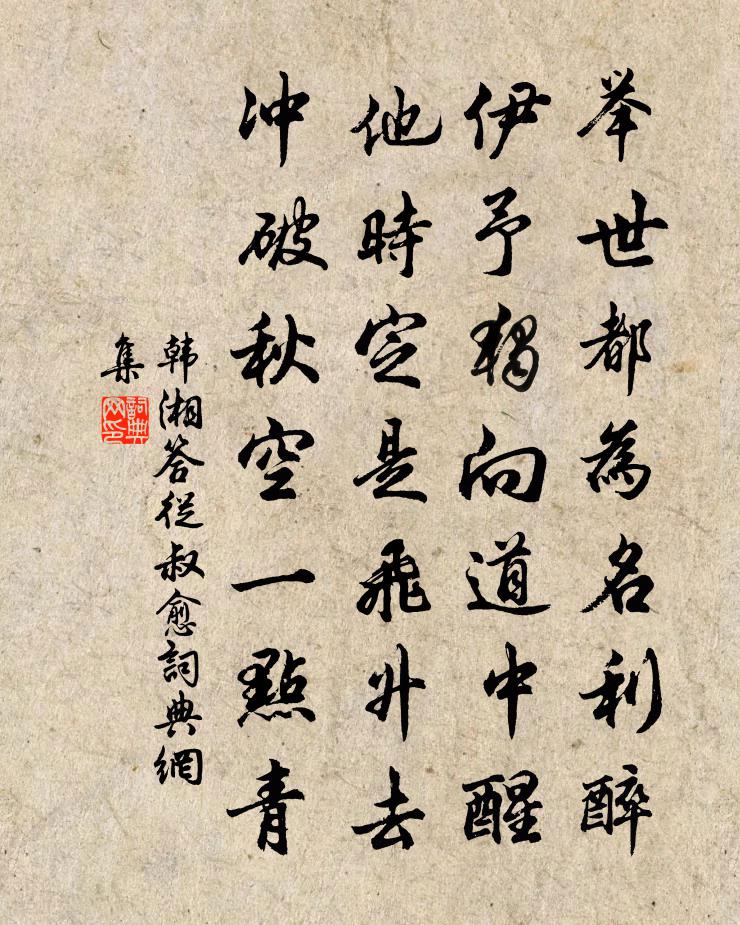 举世都為名利醉
伊予獨向道中醒
他時定是飛升去
冲破秋空一點青
韩湘答從叔愈詞典網
集
詞典
网印